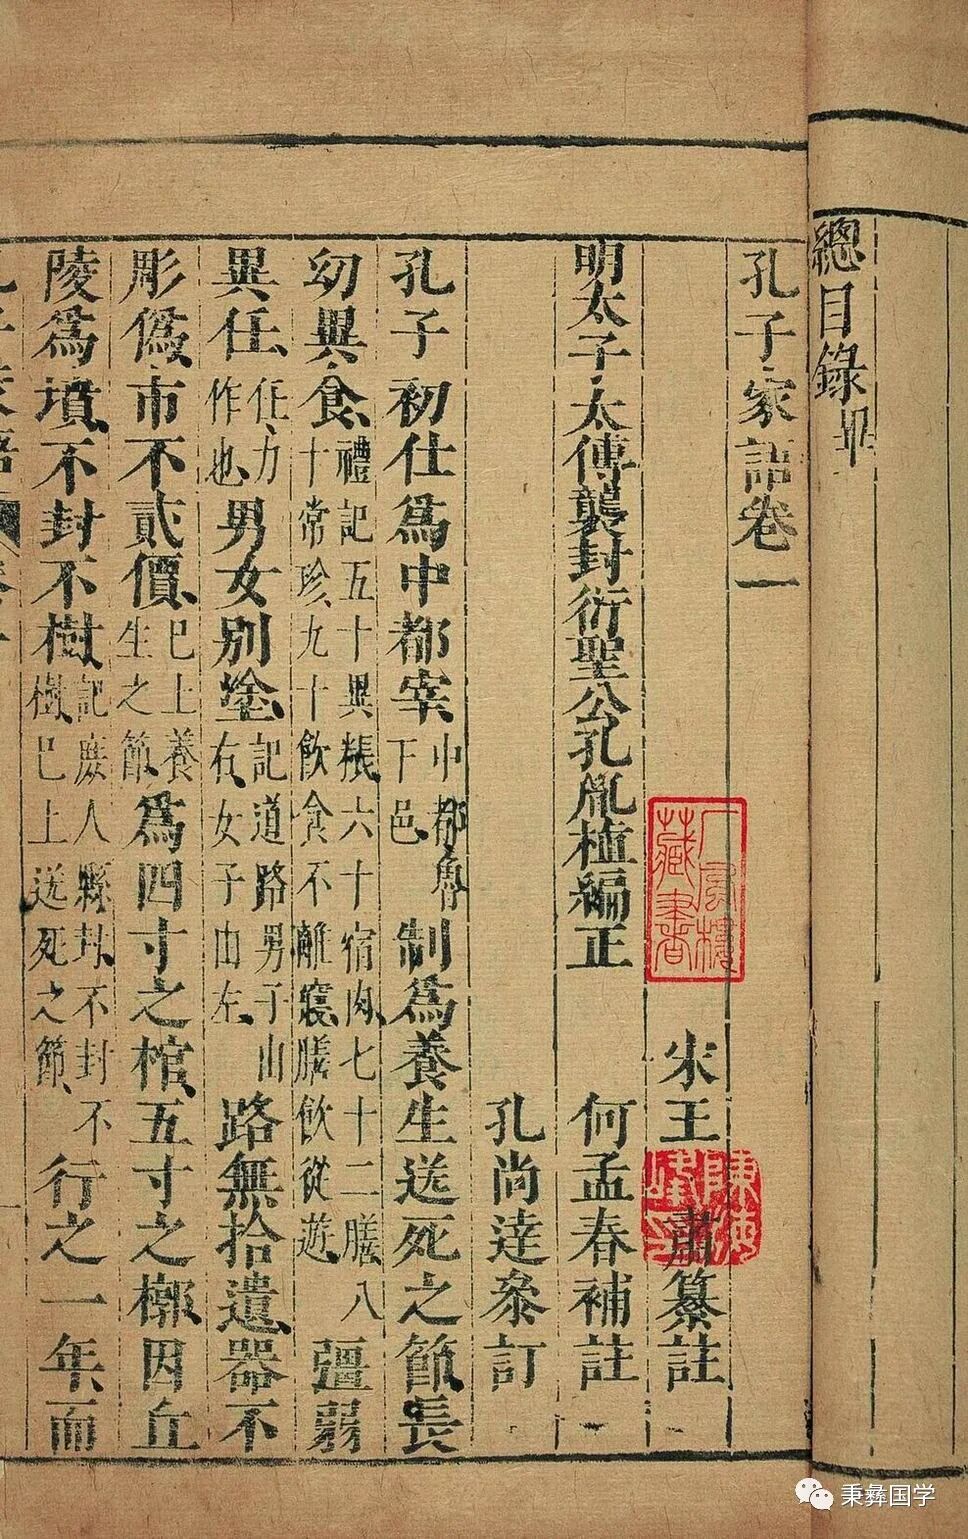 總目錄畢
孔子家語卷一
宋王肅纂註
明太子太傅襲封衍聖公孔胤植編正 何孟春補註
孔尚達叅訂
孔子初仕爲中都宰中都魯下邑制爲養生送死之節長
幼異食禮記五十異粻六十宿肉七十二膳八十常珍九十飲食不離寢膳飲從遊彊弱
異任任力作也男女別塗記道路男子由右女子由左路無拾遺器不
彫僞市不貳價巳上養生之節爲四寸之棺五寸之槨因丘
陵爲墳不封不樹記庶人縣封不封不樹巳上送死之節行之一年而
藏書
秉彝国学